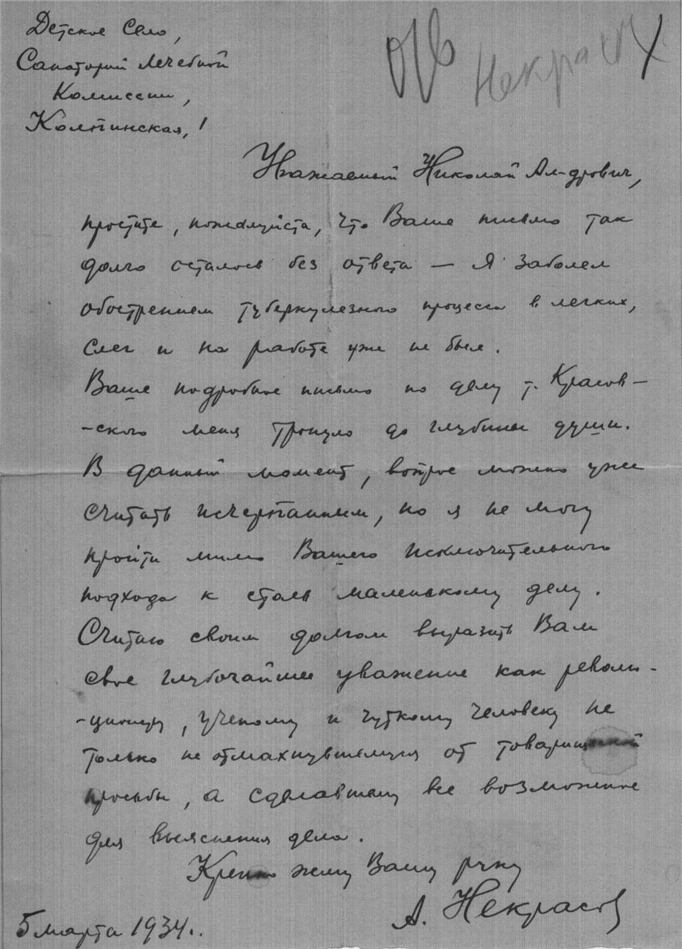 Детское Село,
Санаторий Лечебной
Комиссии,
Колпинская, 1
Некрасов
Уважаемый Николай Ал-дрович,
простите, пожалуйста, что Ваше письмо так
долго осталось без ответа — Я заболел
обострением туберкулезного процесса в легких,
слег и на работе уже не был.
Ваше подробное письмо по делу т. Красов-
-ского меня тронуло до глубины души.
В данный момент, вопрос можно уже
считать исчерпанным, но я не могу
пройти мимо Вашего исключительного
подхода к столь маленькому делу.
Считаю своим долгом выразить Вам
свое глубочайшее уважение как револю-
-ционеру, ученому и чуткому человеку не
только не отмахнувшемуся от товарищеской
просьбы, а сделавшему все возможное
для выяснения дела.
Крепко жму Вашу руку
А. Некрасов
5 марта 1934г.